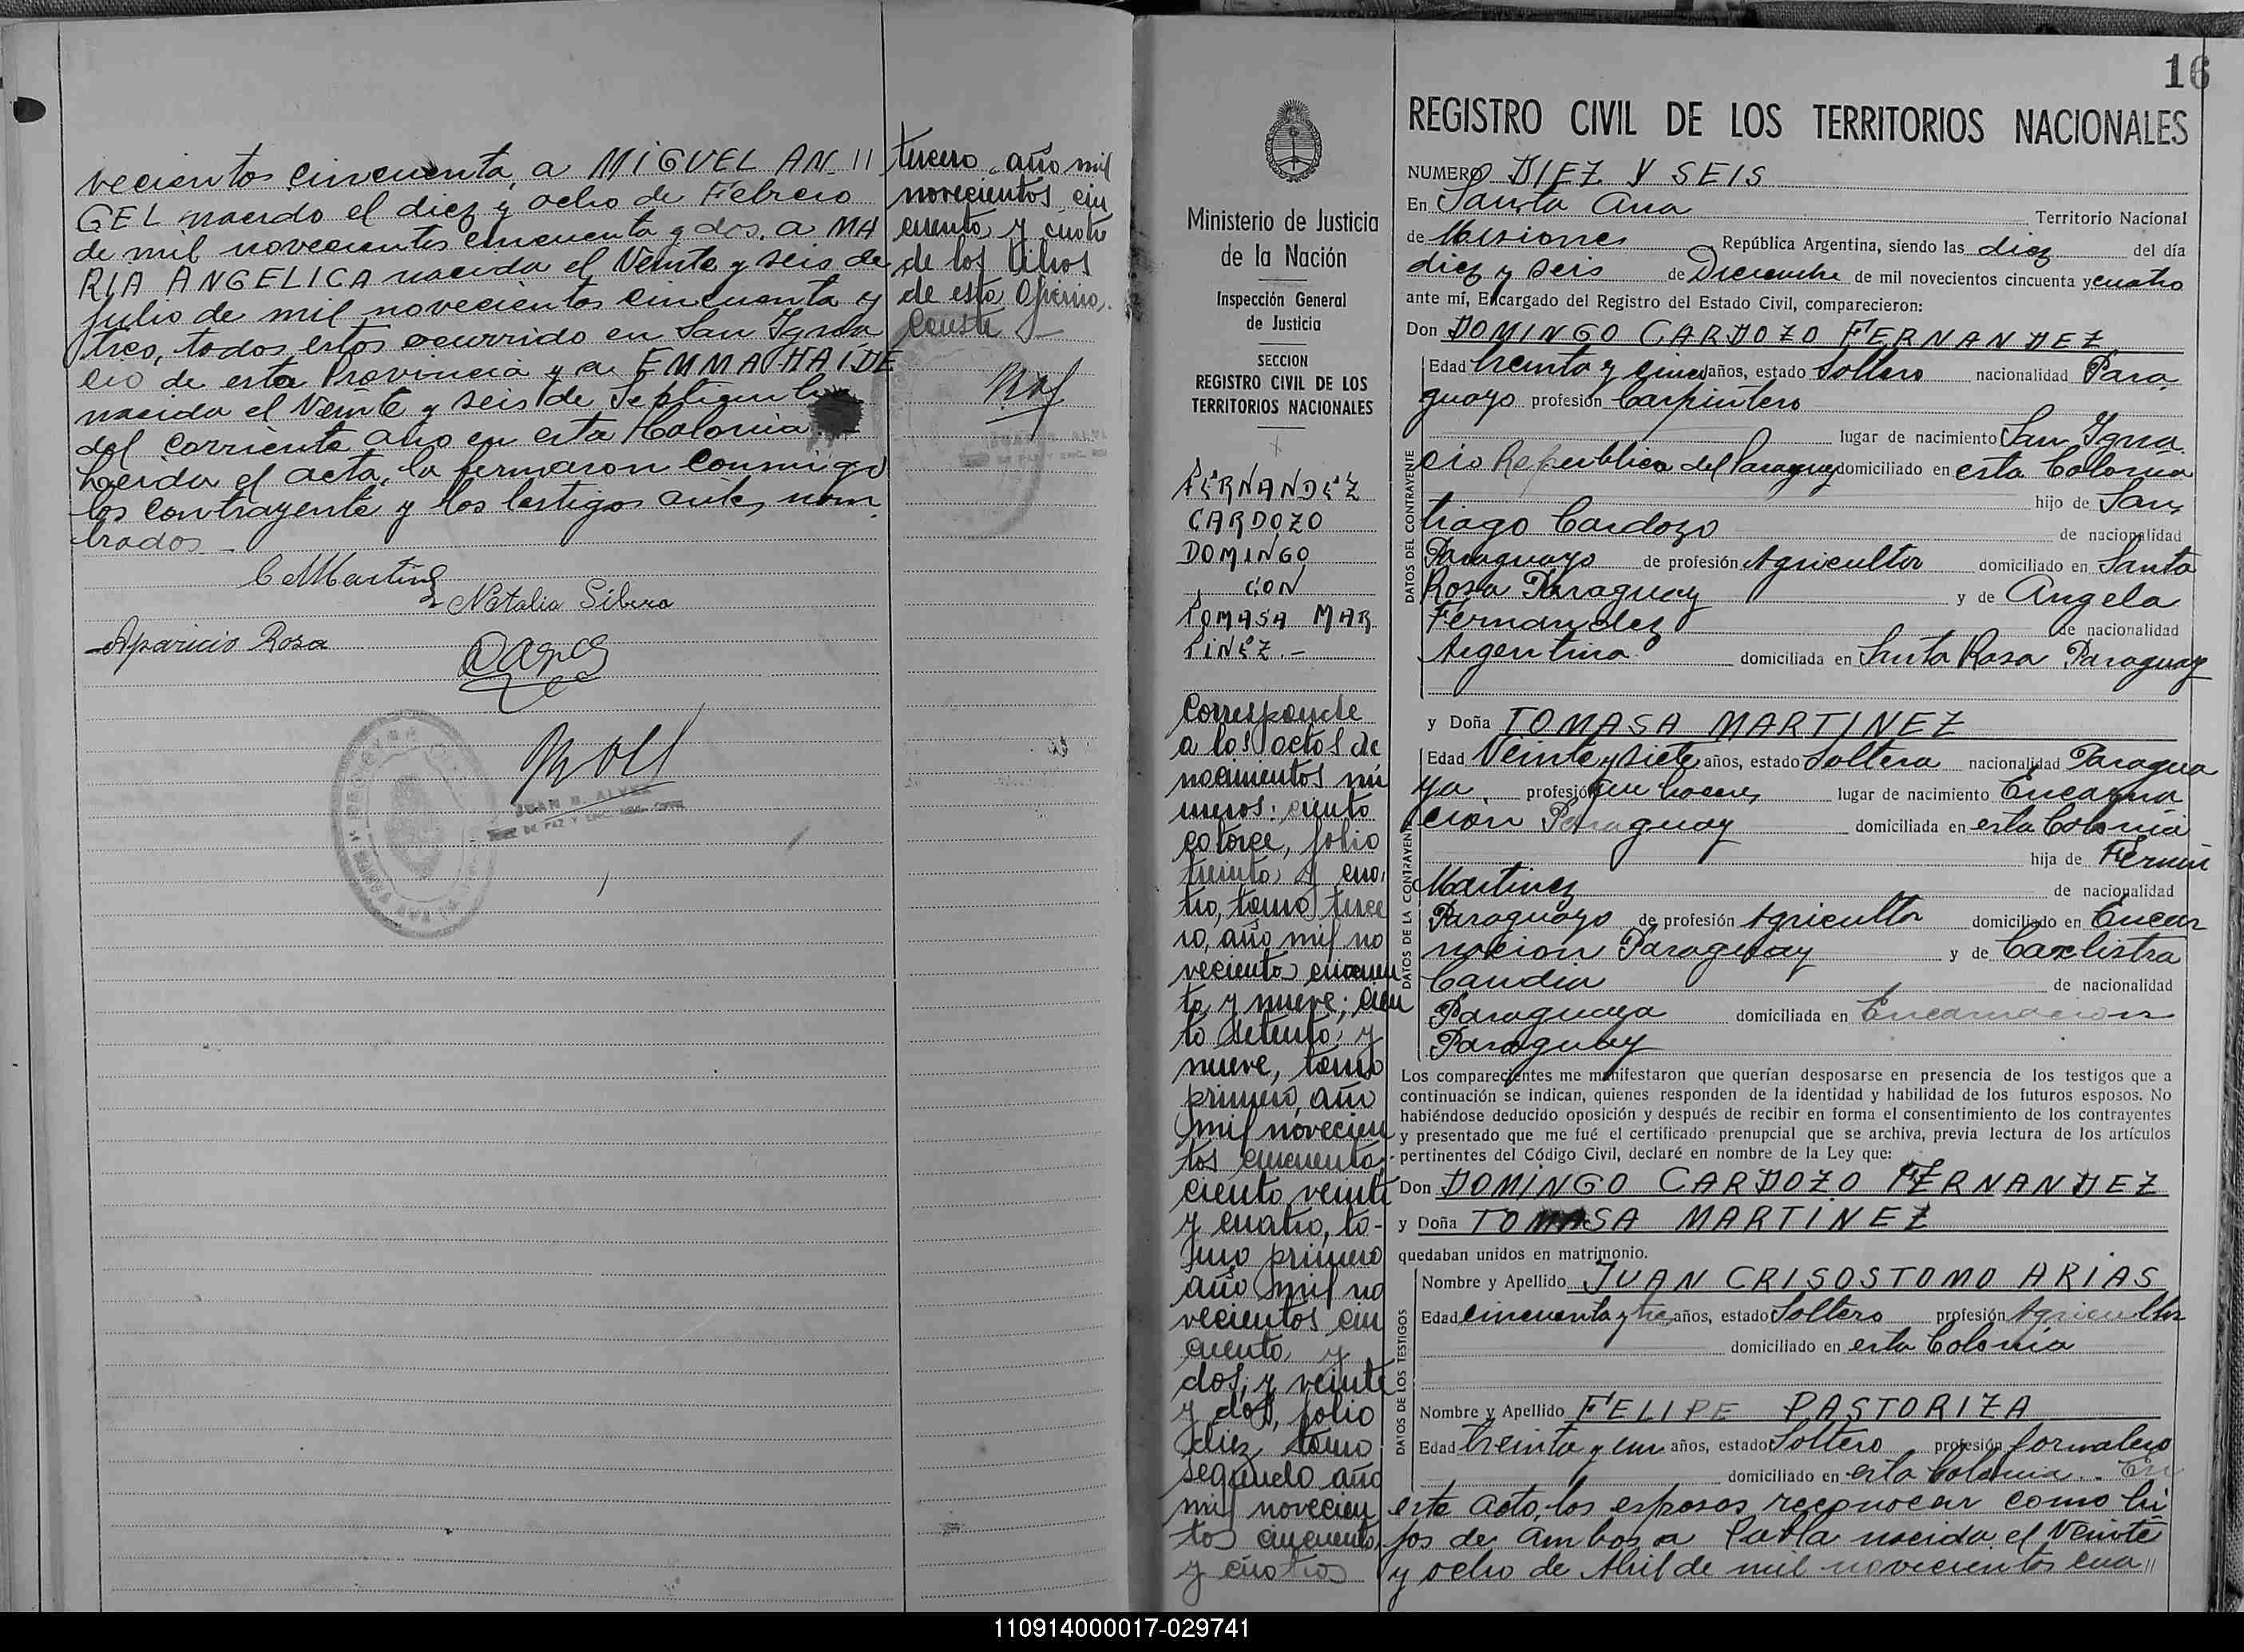 vecientos cincuenta, a MIGUEL AN-//
GEL nacido el diez y ocho de Febrero
de mil novecientos cincuenta y dos. a MA
RIA ANGELICA nacida el Veinte y seis de
Julio de mil novecientos cincuenta y
tres, todos estos ocurrido en San Igna
cio de esta Provincia y a EMMA HAIDE
nacida el Veinte y seis de Septiembre
del corriente año en esta Colonia
Leida el acta, la firmaron conmigo
los contrayente y los testigos antes nom
brados.
C Martinez
Natalia Silvero
Aparicio Rosa
JUAN B. ALVEZ
DE PAZ Y ENC.
tercero, año mil
novecientos cin
cuenta y cuatro
de los libros
de esta Oficina.
Conste
16
REGISTRO CIVIL DE LOS TERRITORIOS NACIONALES
Ministerio de Justicia
de la Nación
Inspección General
de Justicia
SECCION
REGISTRO CIVIL DE LOS
TERRITORIOS NACIONALES
FERNANDEZ
CARDOZO
DOMINGO
CON
TOMASA MAR
TINEZ.-
Corresponde
a los actos de
nacimientos nú
meros: ciento
catorce, folio
treinta y cua
tro, tomo terce
ro, año mil no
vecientos cuaren
ta y nueve; cien
to setenta y
nueve, tomo
primero, año
mil novecien
tos cincuenta;
ciento veinte
y cuatro, to-
mo primero
año mil no
vecientos cin
cuenta y
dos, y veinte
y dos, folio
diez tomo
segundo año
mil novecien
tos cincuenta
y cuatro
NUMERO DIEZ Y SEIS
En Santa Ana Territorio Nacional
de Misiones República Argentina, siendo las diez del día
diez y seis de Diciembre de mil novecientos cincuenta y cuatro
ante mí, Encargado del Registro del Estado Civil, comparecieron:
Don DOMINGO CARDOZO FERNANDEZ
DATOS DEL CONTRAYENTE
Edad treinta y cinco años, estado Soltero nacionalidad Para
guayo profesión Carpintero
lugar de nacimiento San Igna
cio Republica del Paraguay domiciliado en esta Colonia
hijo de San
tiago Cardozo de nacionalidad
Paraguayo de profesión Agricultor domiciliado en Santa
Rosa Paraguay y de Angela
Fernandez de nacionalidad
Argentina domiciliada en Santa Rosa Paraguay
y Doña TOMASA MARTINEZ
DATOS DE LA CONTRAYENTE
Edad Veinte y siete años, estado Soltera nacionalidad Paragua
ya profesión que haceres lugar de nacimiento Encarna
cion Paraguay domiciliada en esta Colonia
hija de Fermin
Martinez de nacionalidad
Paraguayo de profesión Agricultor domiciliado en Encar
nacion Paraguay y de
Candia de nacionalidad
Paraguaya domiciliada en Encarnacion
Paraguay
Los comparecientes me manifestaron que querían desposarse en presencia de los testigos que a
continuación se indican, quienes responden de la identidad y habilidad de los futuros esposos. No
habiéndose deducido oposición y después de recibir en forma el consentimiento de los contrayentes
y presentado que me fué el certificado prenupcial que se archiva, previa lectura de los artículos
pertinentes del Código Civil, declaré en nombre de la Ley que:
Don DOMINGO CARDOZO FERNANDEZ
y Doña TOMASA MARTINEZ
quedaban unidos en matrimonio.
DATOS DE LOS TESTIGOS
Nombre y Apellido JUAN CRISOSTOMO ARIAS
Edad cincuenta y tres años, estado Soltero profesión Agricultor
domiciliado en esta Colonia
Nombre y Apellido FELIPE PASTORIZA
Edad treinta y un años, estado Soltero profesión Jornalero
domiciliado en esta Colonia. En
este acto, los esposos reconocen como hi
jos de ambos a Pabla nacida el Veinte
y ocho de Abril de mil novecientos cua//
110914000017-029741